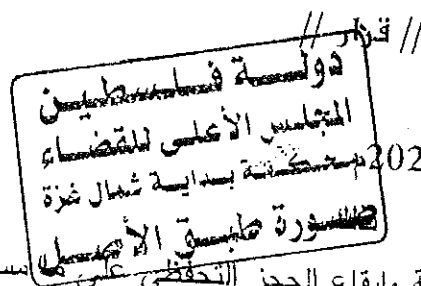 // قرار //
دولة فلسطين
المجلس الأعلى للقضاء
محكمة بداية شمال غزة
202
صورة طبق الأصل
بإيقاع الحجز التحفظي على